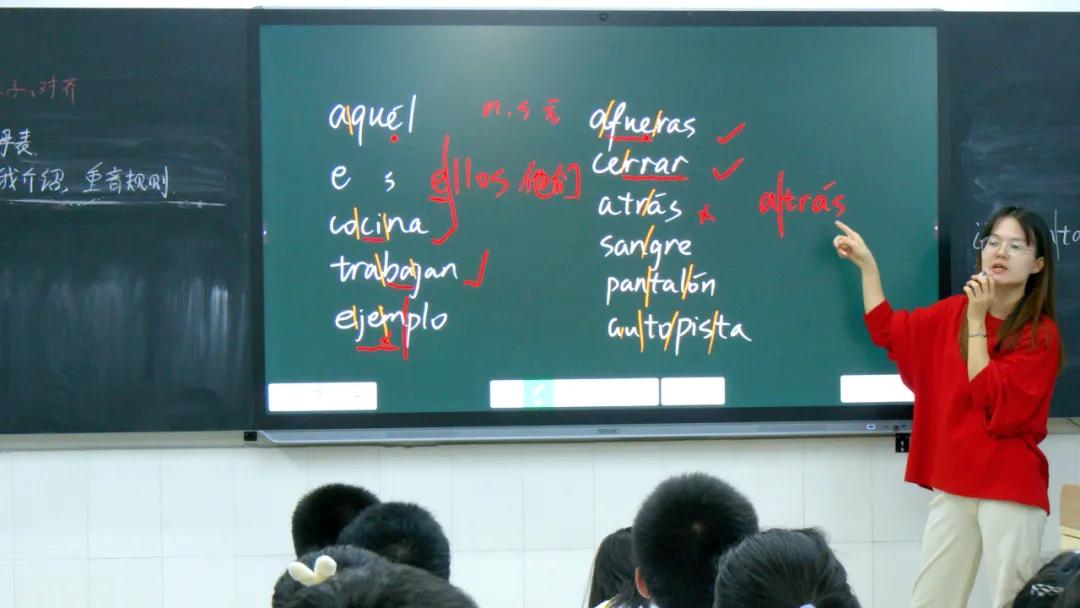 对齐
我介绍,重音规则
aquél
n,s 元
e s
ellos 他们
cocina
trabajan
ejemplo
afueras
cerrar
atrás
atrás
sangre
pantalón
autopista
seewo